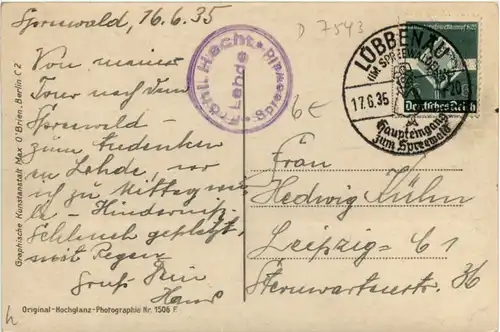 Spreewald, 16.6.35
D 7543
Von meiner
Tour nach dem
Spreewald -
zum Andenken
in Lehde, wo
ich zu Mittag
mit Regen
Gruß Dein
Hans
Fröhl. Hecht • Lehde • Spreewald
6€
LÜBBENAU
IM SPREEWALD
17.6.35
20
Haupteingang
zum Spreewald
Deutsches Reich
Frau
Hedwig Kühn
Leipzig C 1
Sternwartenstr. 36
Graphische Kunstanstalt Max O'Brien, Berlin C 2
Original-Hochglanz-Photographie Nr. 1506 F
h